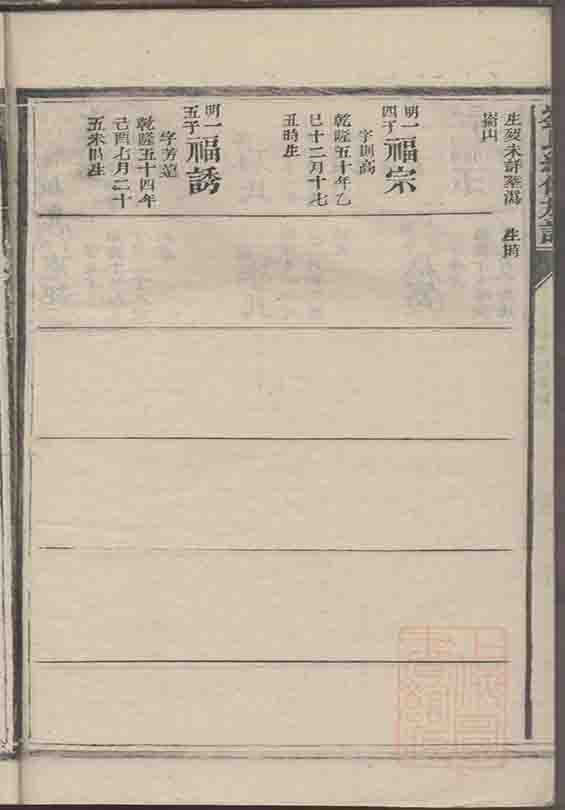 生歿未詳葬瀉 生時
樹山
明一四子
福宗
字則高
乾隆五十年乙
巳十二月十七
丑時生
明一五子
福誘
字芳遠
乾隆五十四年
己酉七月二十
五未時生